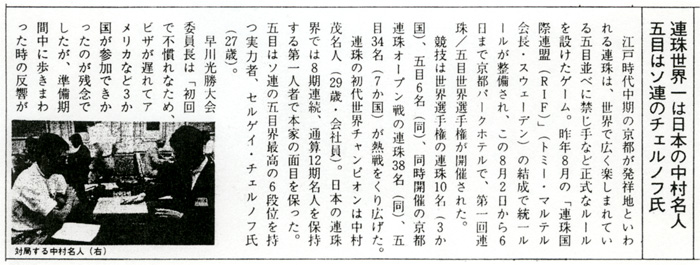 連珠世界一は日本の中村名人
五目はソ連のチェルノフ氏
江戸時代中期の京都が発祥地といわ
れる連珠は、世界で広く楽しまれてい
る五目並べに禁じ手など正式なルール
を設けたゲーム。昨年8月の「連珠国
際連盟（RIF）（トミー・マルテル
会長・スウェーデン）の結成で統一ル
ールが整備され、この8月2日から6
日まで京都パークホテルで、第一回連
珠／五目世界選手権が開催された。
競技は世界選手権の連珠10名（3か
国）、五目6名（同）、同時開催の京都
連珠オープン戦の連珠38名（同）、五
目34名（7か国）が熱戦をくり広げた。
連珠の初代世界チャンピオンは中村
茂名人（29歳・会社員）。日本の連珠
界では8期連続、通算12期名人を保持
する第一人者で本家の面目を保った。
五目はソ連の五目界最高の6段位を持
つ実力者、セルゲイ・チェルノフ氏
（27歳）。
早川光勝大会
委員長は「初回
で不慣れなため、
ビザが遅れてア
メリカなど3か
国が参加できか
ったのが残念で
したが、準備期
間中に歩きまわ
った時の反響が
対局する中村名人（右）